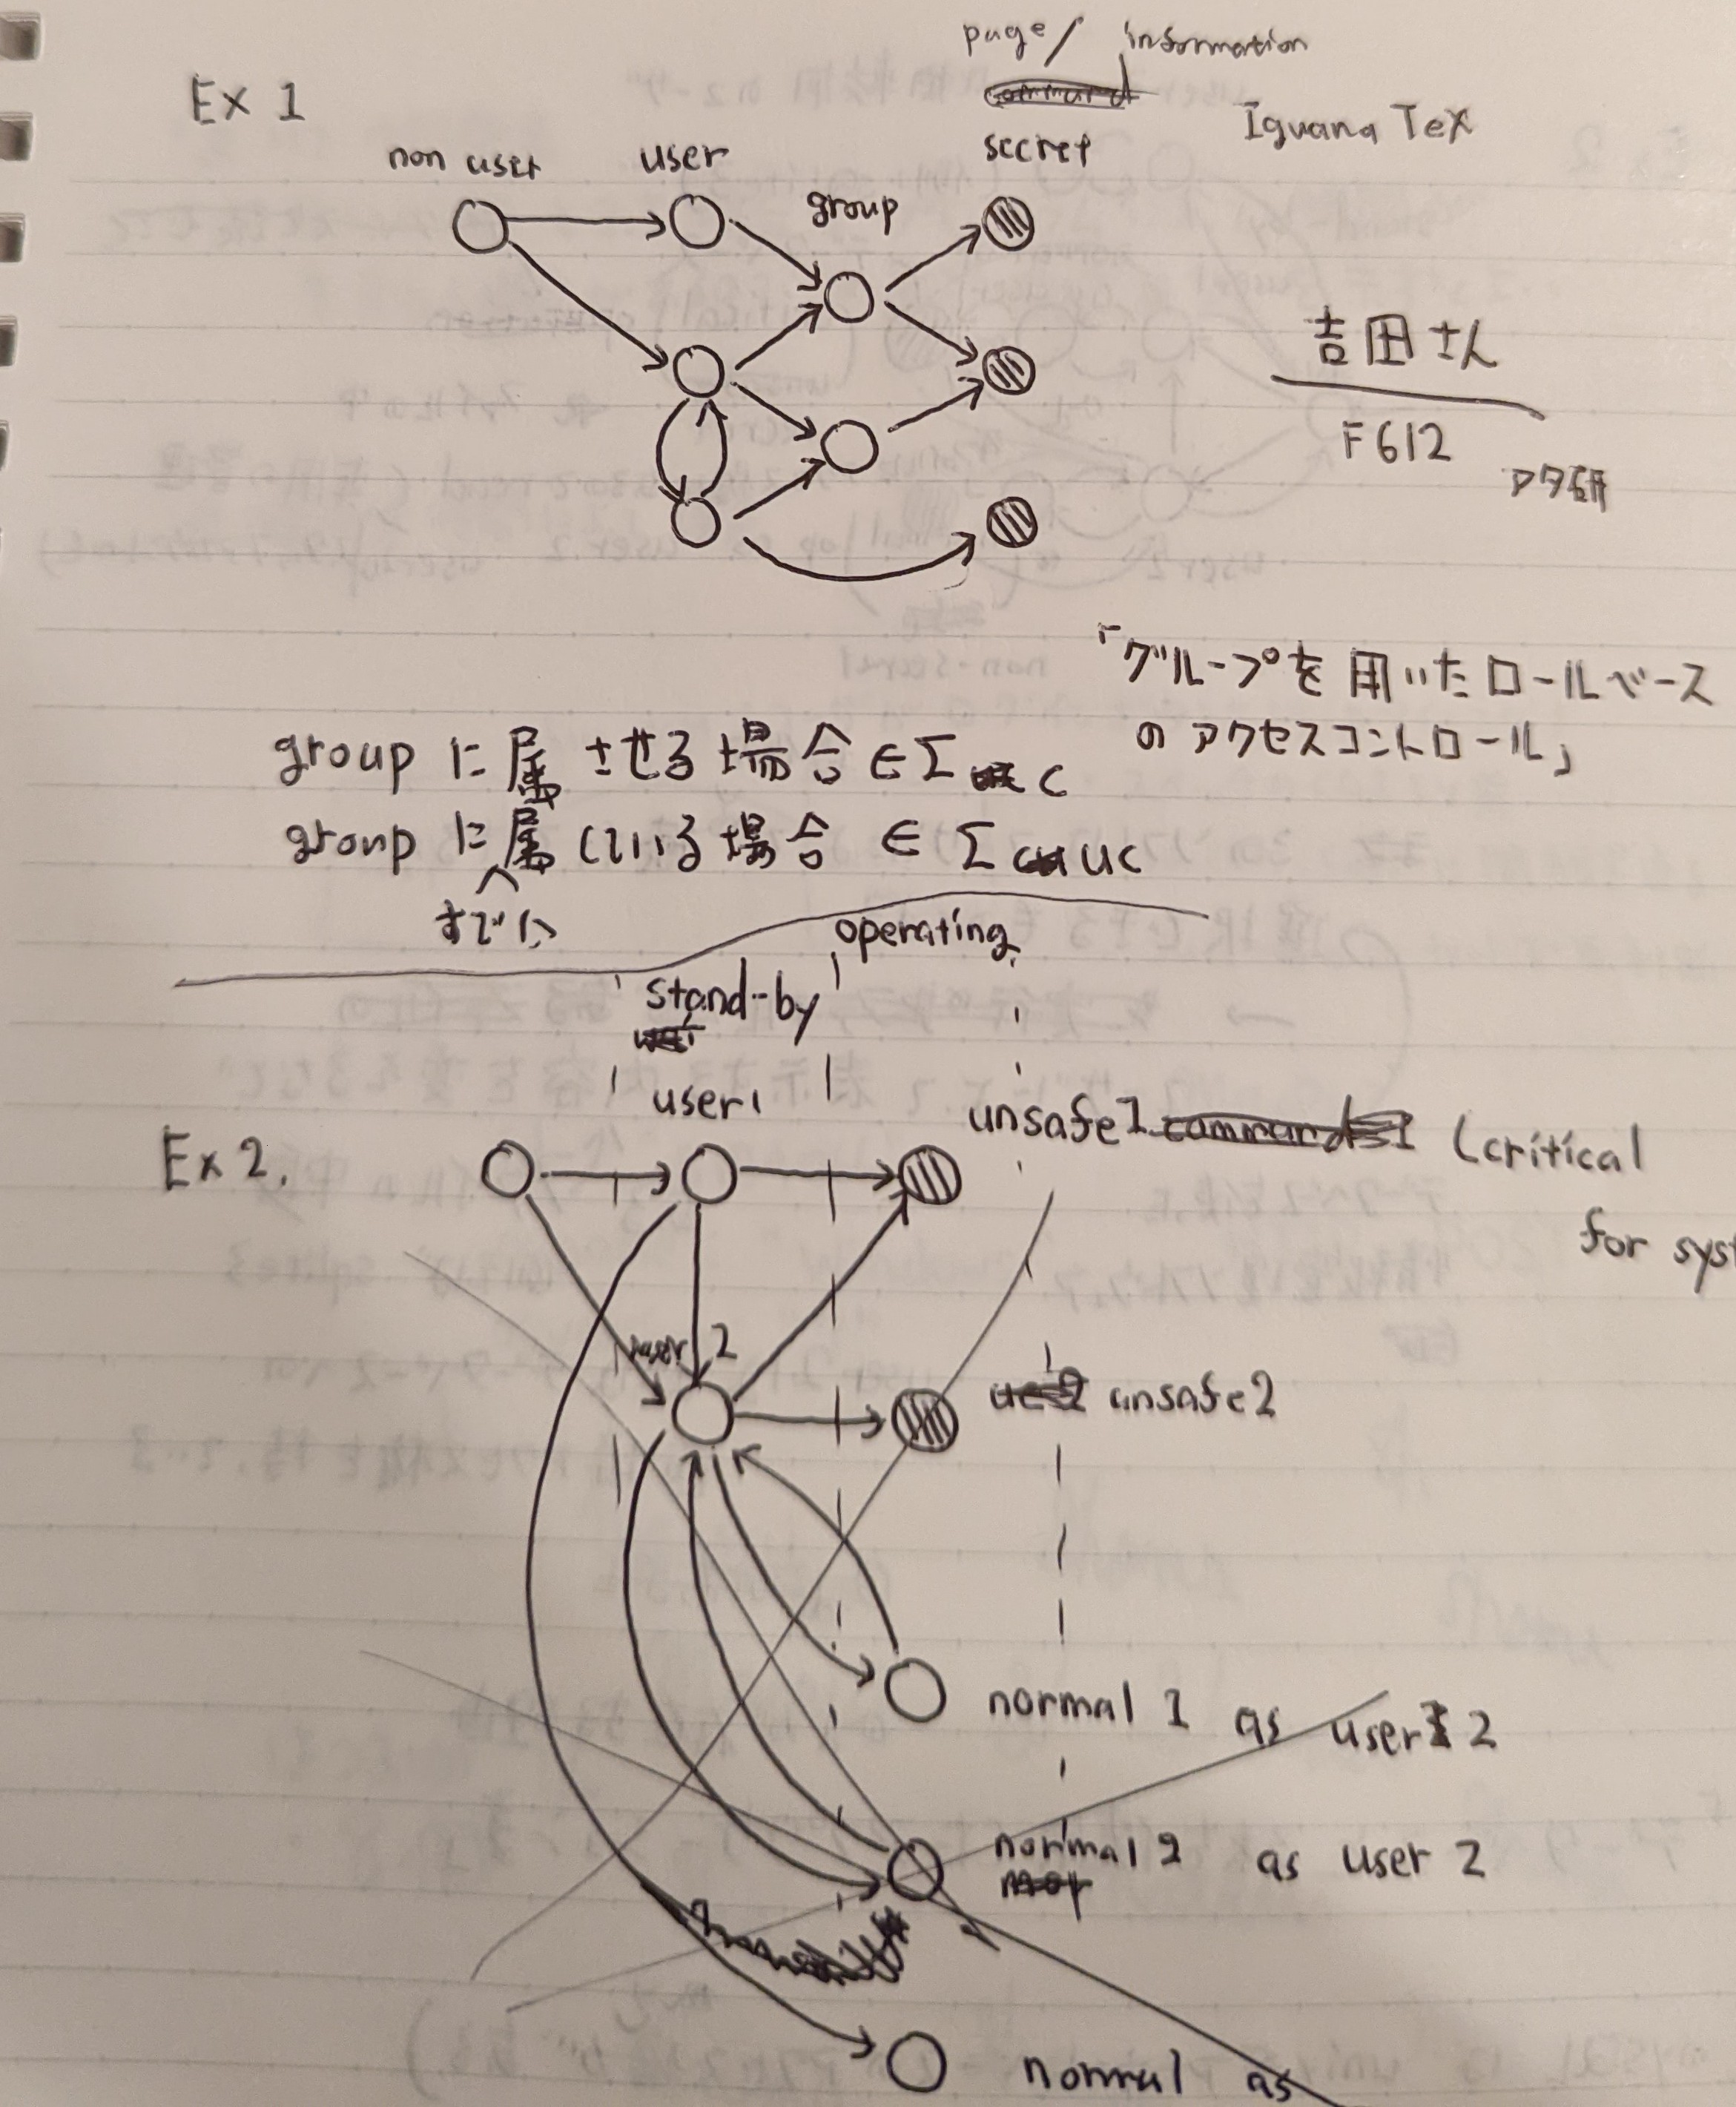 Ex 1
page / information
Iguana TeX
non user
user
group
secret
吉田さん
F612
アタ研
「グループを用いたロールベース
のアクセスコントロール」
group に属させる場合 ∈ Σc
group に属している場合 ∈ Σuc
すでに
stand-by
operating
Ex 2.
user1
unsafe1 (critical
for syst
user 2
unsafe2
normal 1 as user 2
normal 2 as user 2
normal as